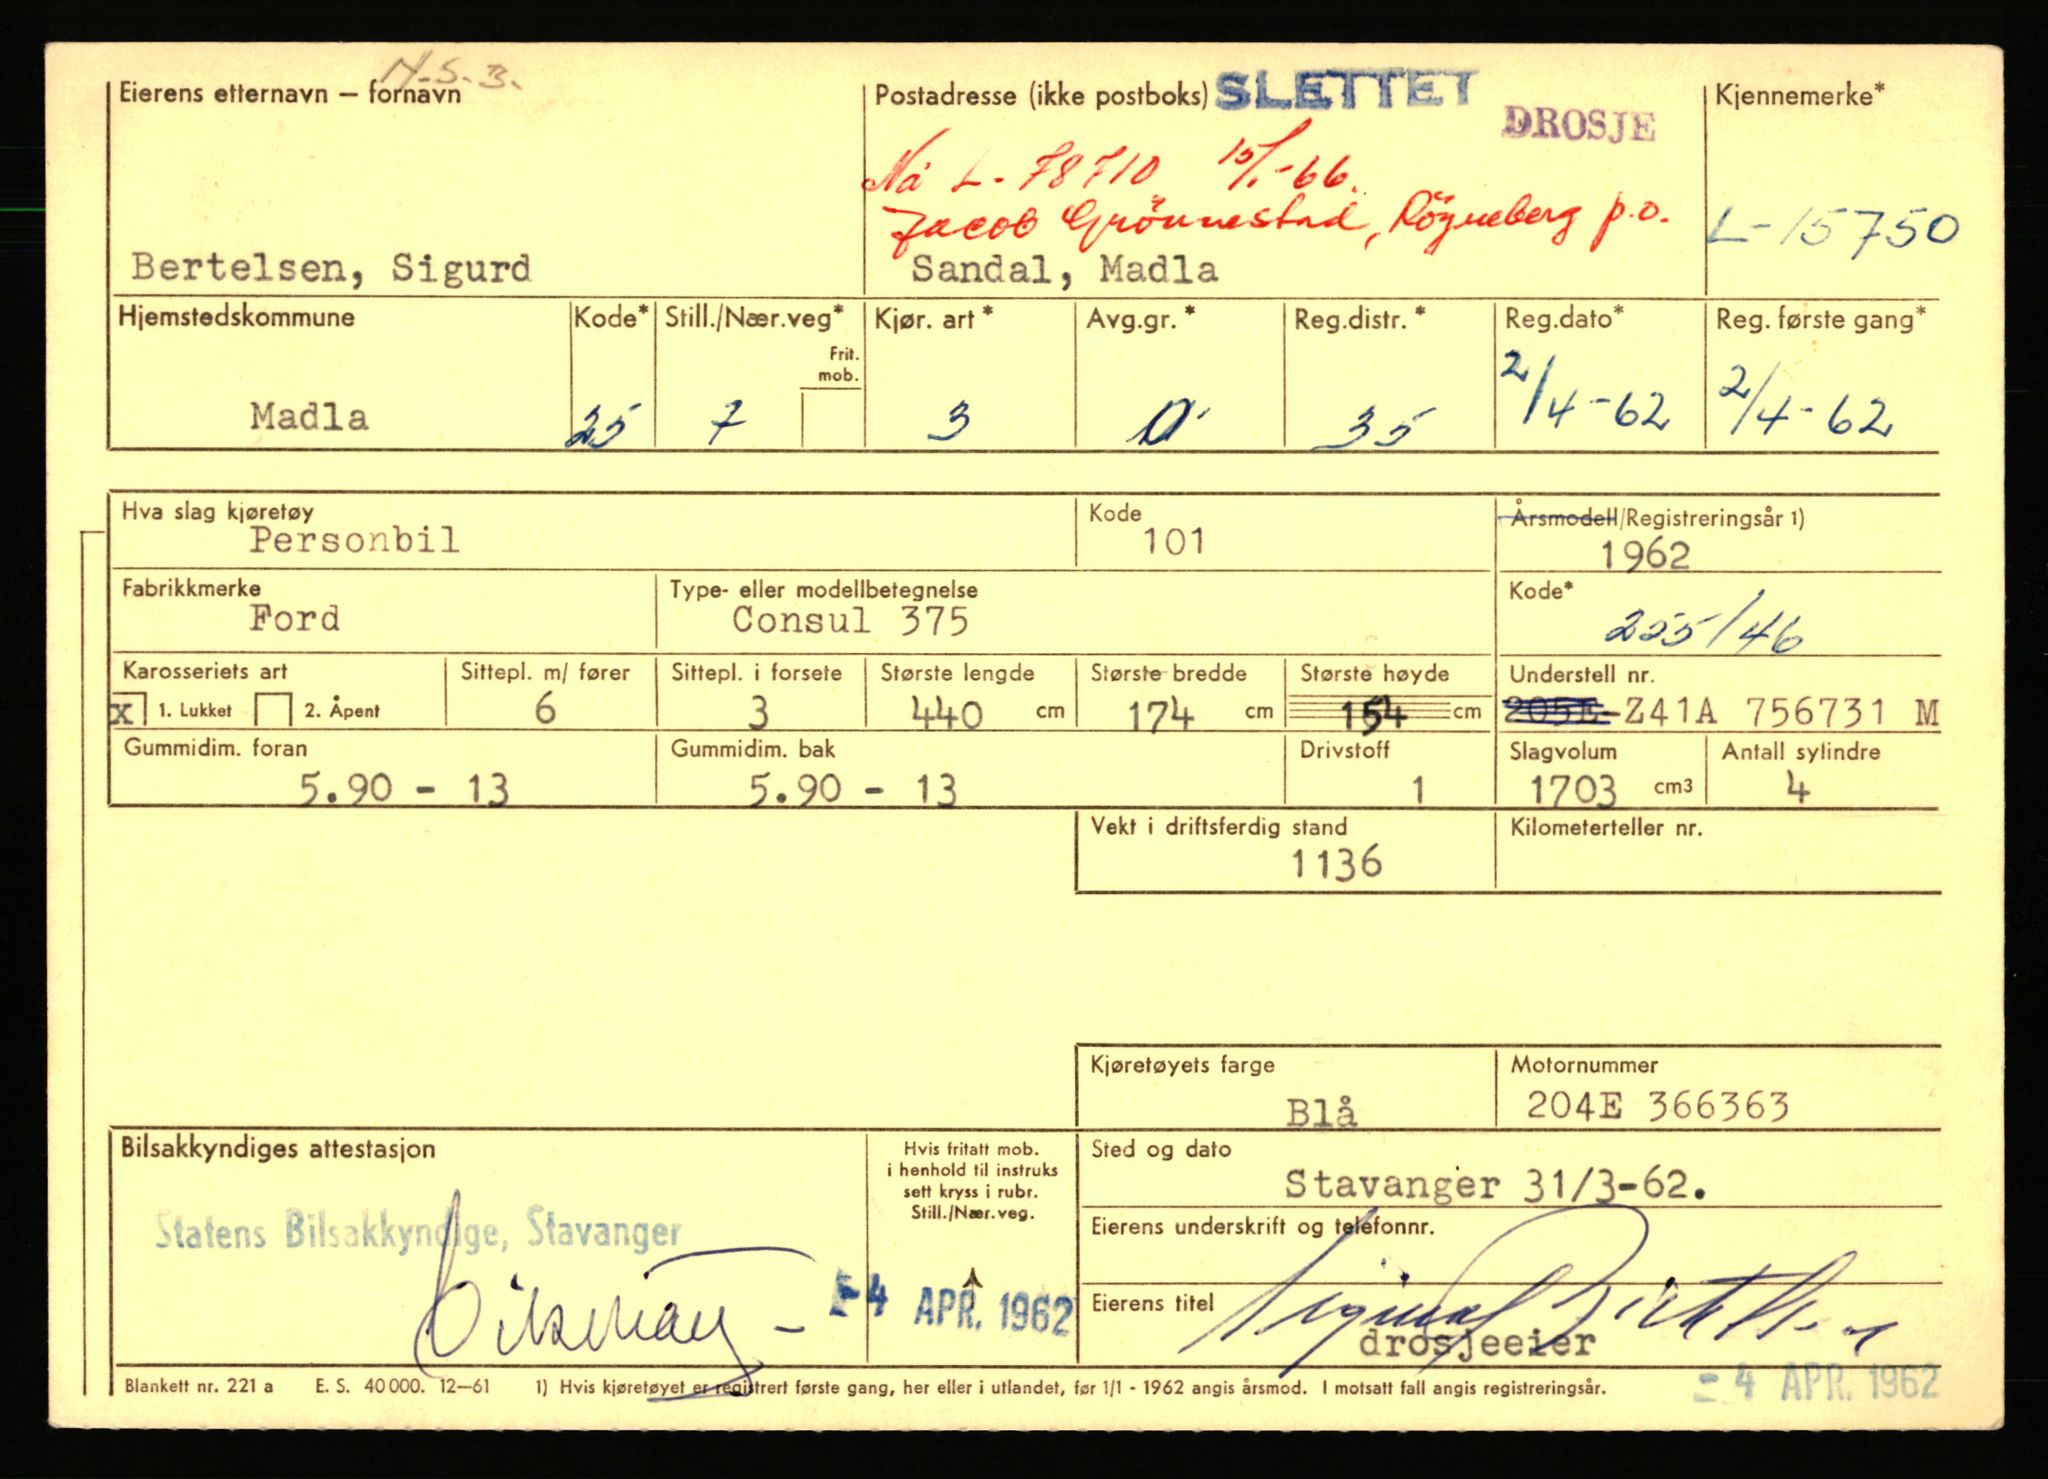 N.S.B.
Eierens etternavn – fornavn
Postadresse (ikke postboks) SLETTET
DROSJE
Kjennemerke*
Nå L-78710 15/1-66.
Jacob Grönnestad, Röyneberg p.o.
L-15750
Bertelsen, Sigurd
Sandal, Madla
Hjemstedskommune Kode* Still./Nær.veg* Kjør. art* Avg.gr.* Reg.distr.* Reg.dato* Reg. første gang*
Frit.
mob.
Madla 25 7 3 0 35 2/4-62 2/4-62
Hva slag kjøretøy Kode Årsmodell/Registreringsår 1)
Personbil 101 1962
Fabrikkmerke Type- eller modellbetegnelse Kode*
Ford Consul 375 255/46
Karosseriets art Sittepl. m/ fører Sittepl. i forsete Største lengde Største bredde Største høyde Understell nr.
x 1. Lukket 2. Åpent 6 3 440 cm 174 cm 154 cm 205E-Z41A 756731 M
Gummidim. foran Gummidim. bak Drivstoff Slagvolum Antall sylindre
5.90 - 13 5.90 - 13 1 1703 cm3 4
Vekt i driftsferdig stand Kilometerteller nr.
1136
Kjøretøyets farge Motornummer
Blå 204E 366363
Bilsakkyndiges attestasjon
Hvis fritatt mob.
i henhold til instruks
sett kryss i rubr.
Still./Nær.veg.
Sted og dato
Stavanger 31/3-62.
Statens Bilsakkyndige, Stavanger
Eierens underskrift og telefonnr.
Sigurd Bertelsen
-4 APR. 1962
Eierens titel
drosjeeier
-4 APR. 1962
Blankett nr. 221 a E. S. 40 000. 12–61 1) Hvis kjøretøyet er registrert første gang, her eller i utlandet, før 1/1 - 1962 angis årsmod. I motsatt fall angis registreringsår.